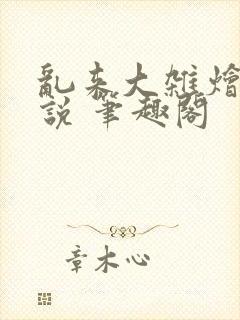 亂来大雜燴
說 筆趣閣
章木心